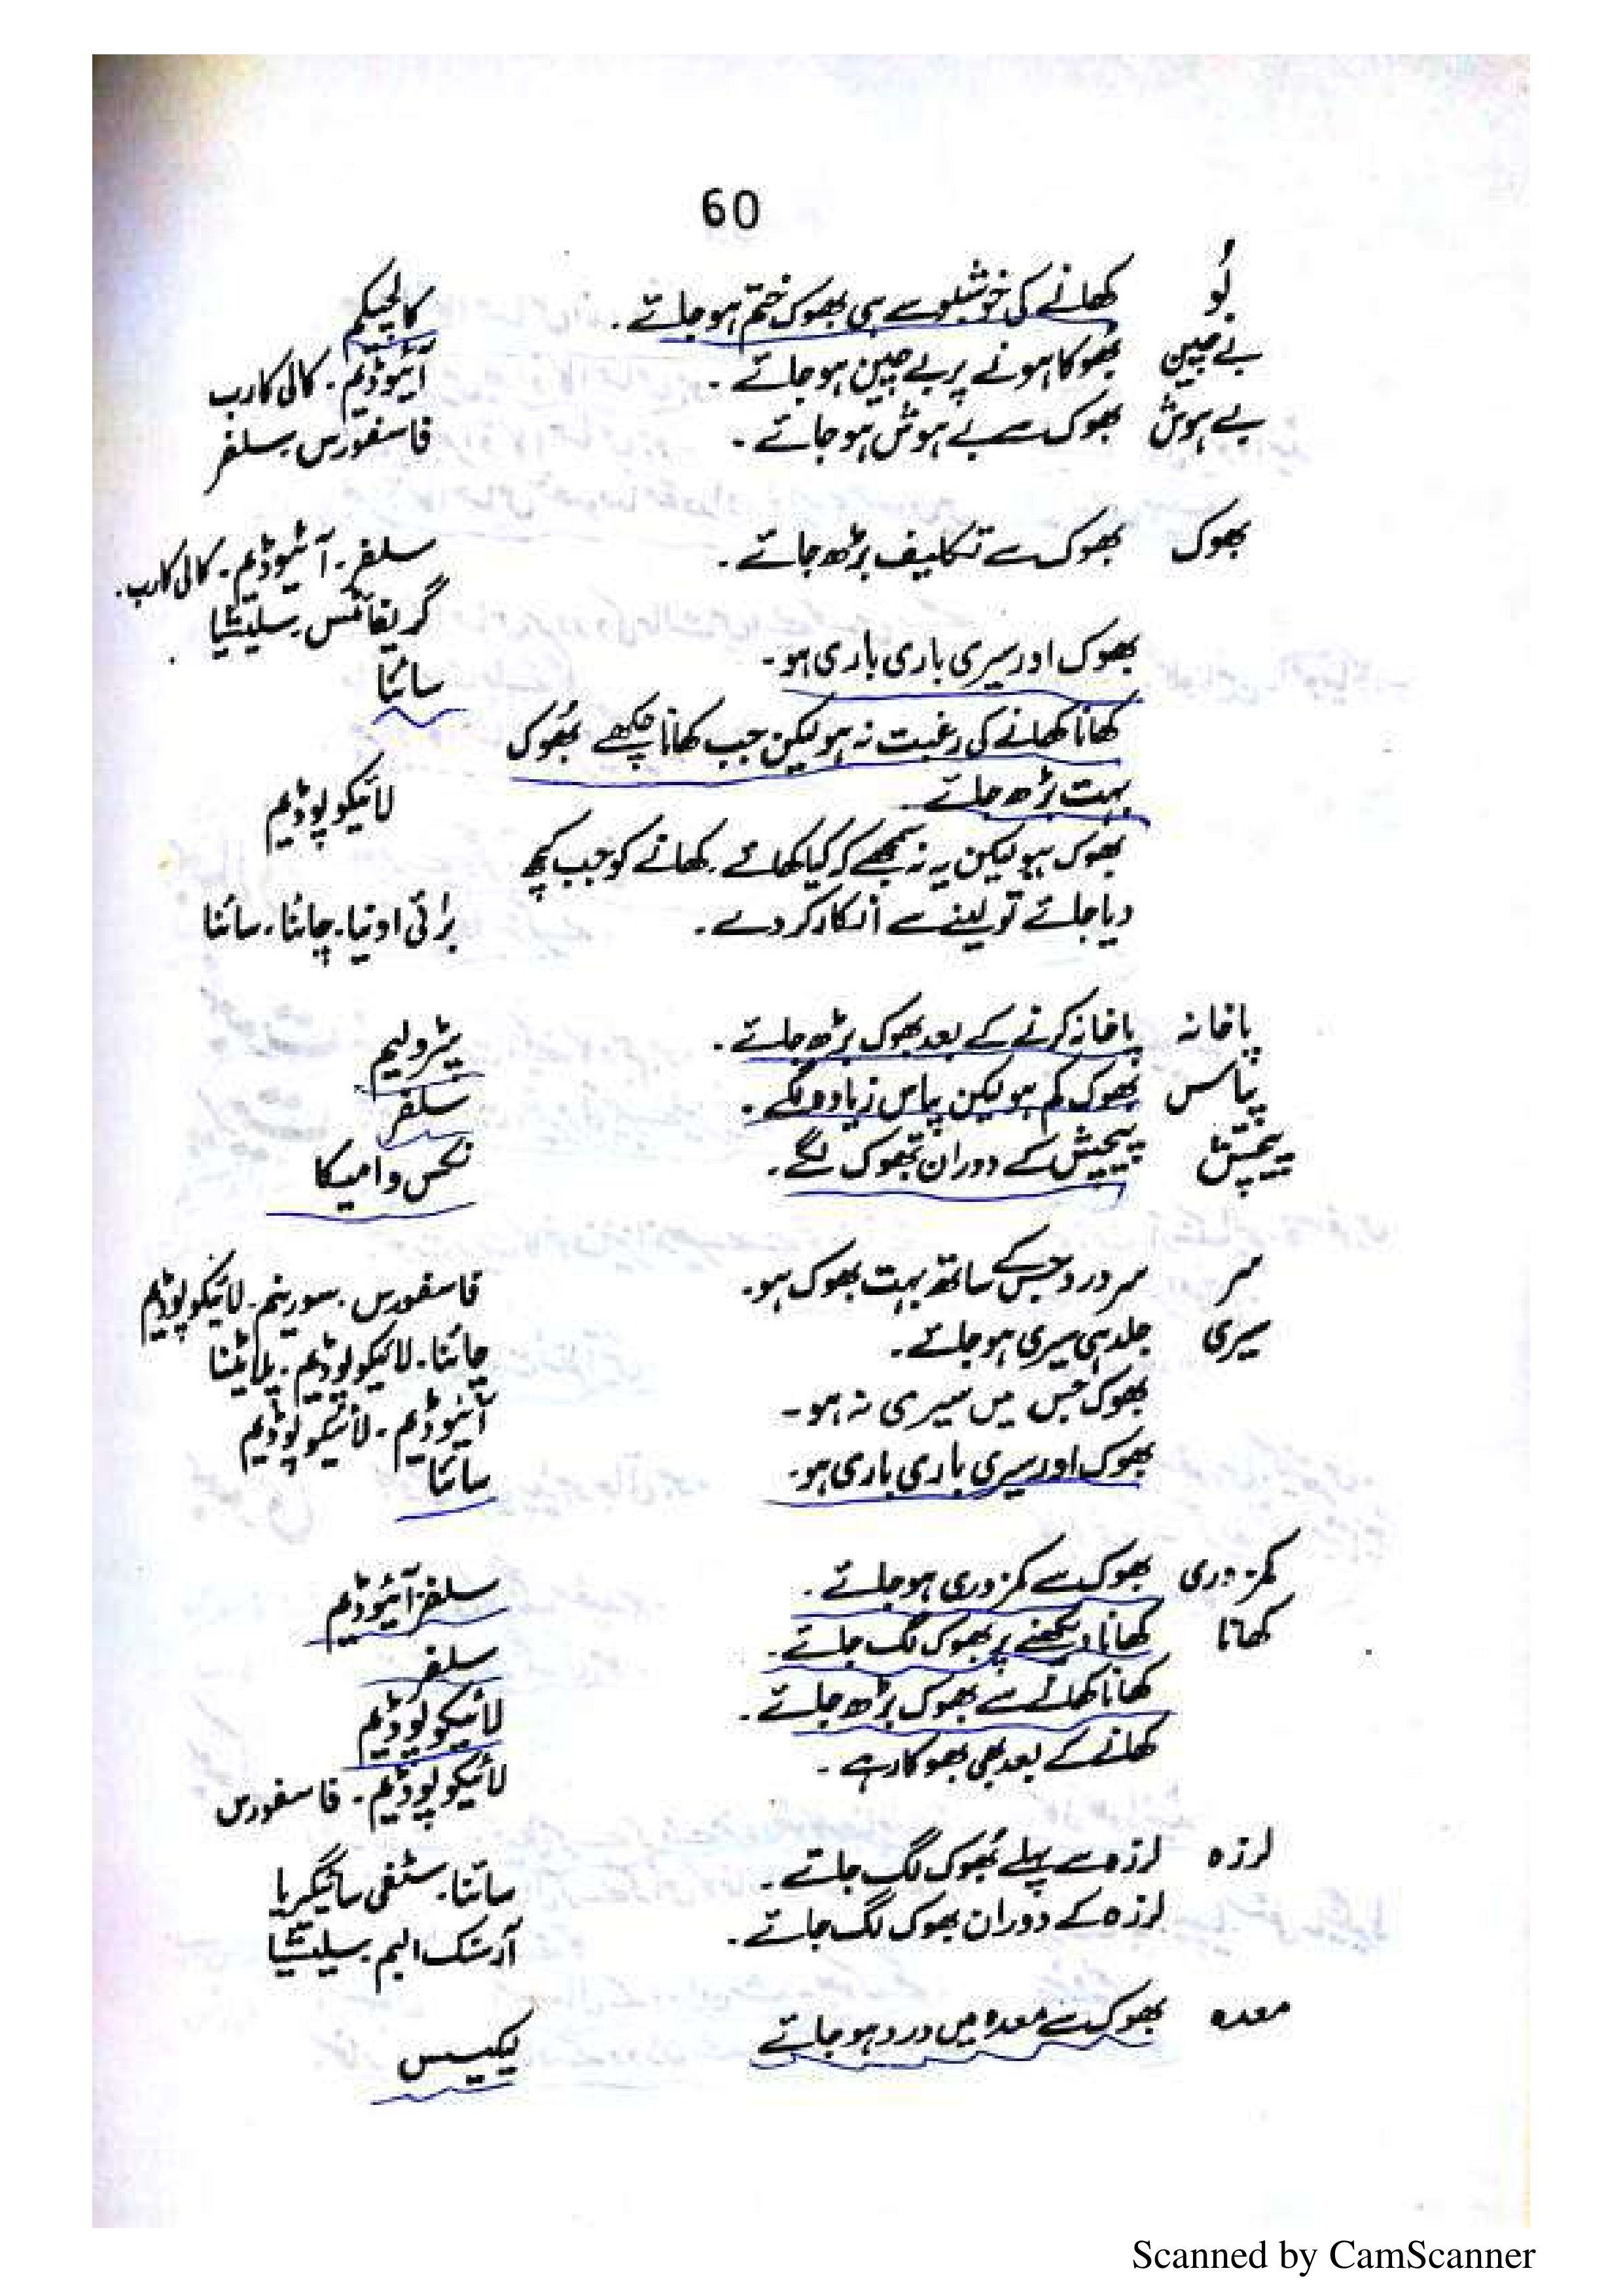 60
بُو کھانے کی خوشبو سے ہی بھوک ختم ہو جائے ۔ کالچیکم
بے چین بھوکا ہونے پر بے چین ہو جائے ۔ آئیوڈیم ۔ کالی کارب
بے ہوش بھوک سے بے ہوش ہو جائے ۔ فاسفورس ۔ سلفر
بھوک بھوک سے تکلیف بڑھ جائے ۔ سلفر ۔ آئیوڈیم ۔ کالی کارب ۔
گریفائٹس ۔ سلیشیا
بھوک اور سیری باری باری ہو ۔ سائنا
کھانا کھانے کی رغبت نہ ہو لیکن جب کھانا چکھے بھُوک
بہت بڑھ جائے لائیکوپوڈیم
بھوک ہو لیکن یہ نہ سمجھے کہ کیا کھائے ۔ کھانے کو جب کچھ
دیا جائے تو لینے سے انکار کر دے ۔ برائی اونیا ۔ چائنا ۔ سائنا
پاخانہ پاخانہ کرنے کے بعد بھوک بڑھ جائے ۔ پٹرولیم
پیاس بھوک کم ہو لیکن پیاس زیادہ لگے ۔ سلفر
پیچش پیچش کے دوران بھوک لگے ۔ نکس وامیکا
سر سر درد جس کے ساتھ بہت بھوک ہو ۔ فاسفورس ۔ سورینم ۔ لائیکوپوڈیم
سیری جلد ہی سیری ہو جائے ۔ چائنا ۔ لائیکوپوڈیم ۔ پلاٹینا
بھوک جس میں سیری نہ ہو ۔ آئیوڈیم ۔ لائیکوپوڈیم
بھوک اور سیری باری باری ہو ۔ سائنا
کمزوری بھوک سے کمزوری ہو جائے ۔ سلفر ۔ آئیوڈیم
کھانا کھانا دیکھنے پر بھوک لگ جائے ۔ سلفر
کھانا کھانے سے بھوک بڑھ جائے ۔ لائیکوپوڈیم
کھانے کے بعد بھی بھوکا رہے ۔ لائیکوپوڈیم ۔ فاسفورس
لرزہ لرزہ سے پہلے بھُوک لگ جائے ۔ سائنا ۔ سٹفی سائیگریا
لرزہ کے دوران بھوک لگ جائے ۔ آرسنک البم ۔ سلیشیا
معدہ بھوک سے معدہ میں درد ہو جائے لیکیسس
Scanned by CamScanner